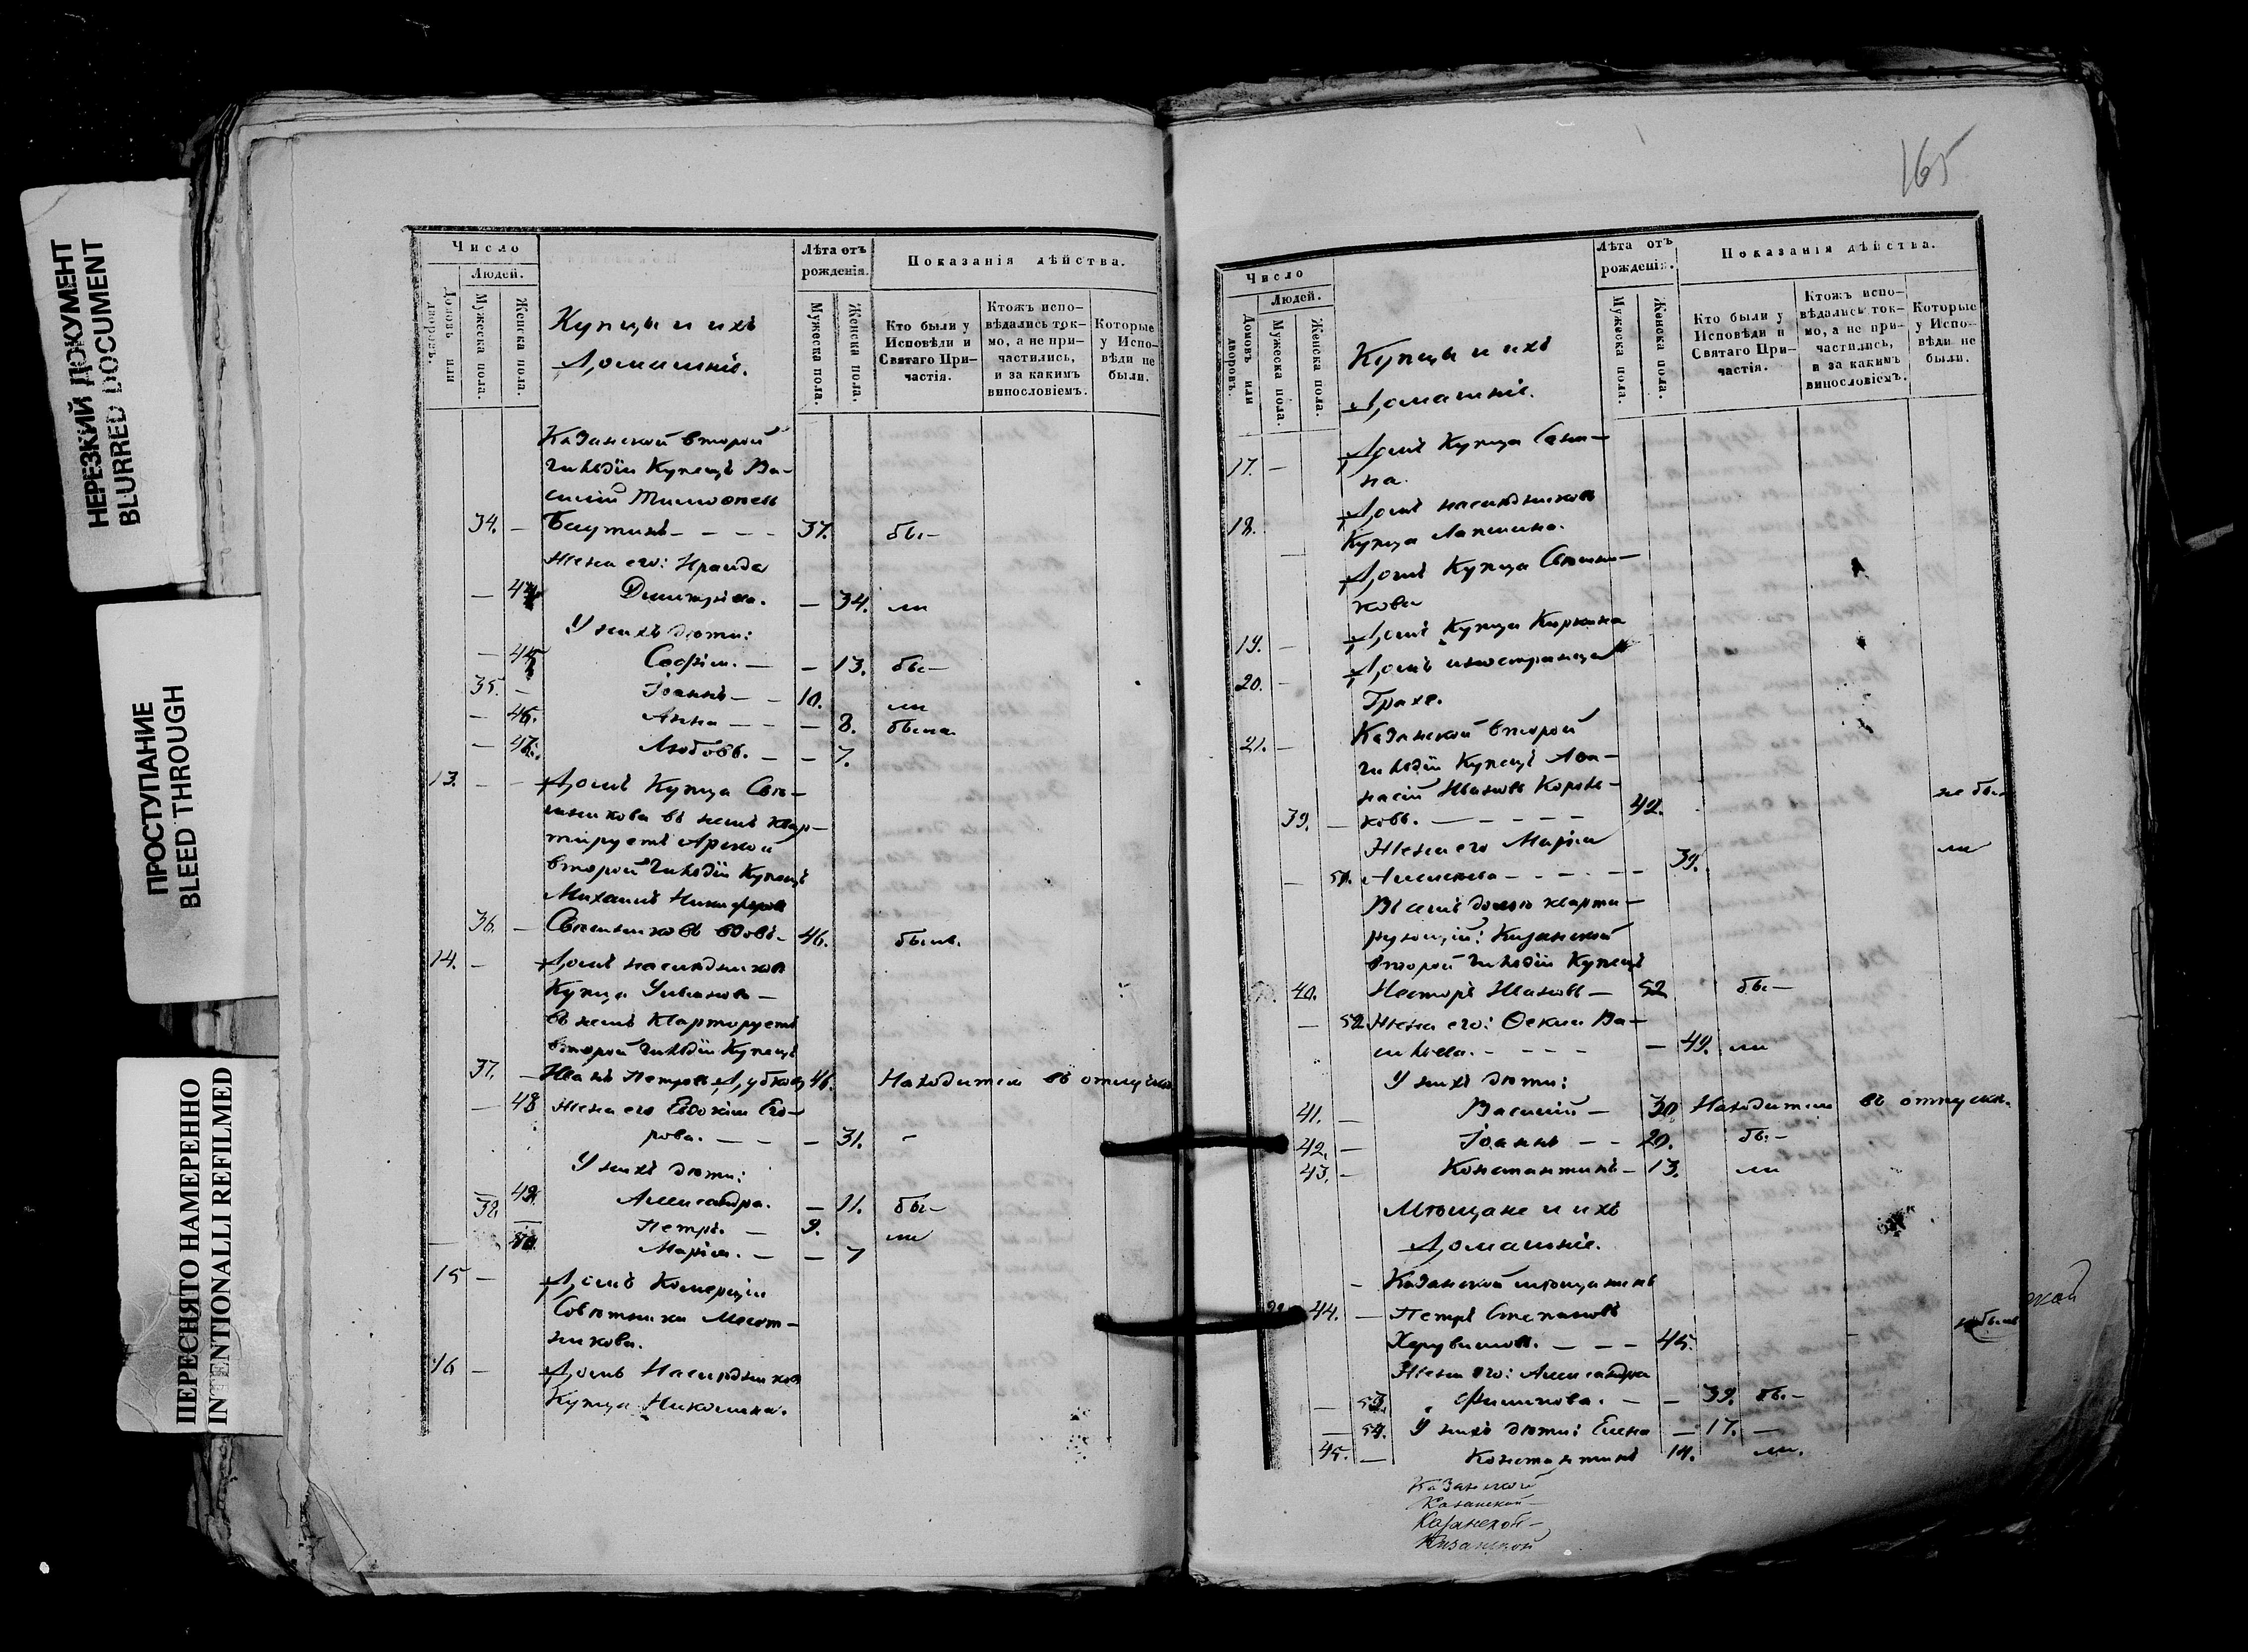 НЕРЕЗКИЙ ДОКУМЕНТ
BLURRED DOCUMENT
ПРОСТУПАНИЕ
BLEED THROUGH
ПЕРЕСНЯТО НАМЕРЕННО
INTENTIONALLI REFILMED
Число
Людей.
Домовъ или дворовъ.
Мужеска пола.
Женска пола.
Купцы и ихъ
Домашніе.
Лѣта отъ рожденія.
Мужеска пола.
Женска пола.
Показанія дѣйства.
Кто были у Исповѣди и Святаго Причастія.
Ктожъ исповѣдались токмо, а не причастились, и за какимъ винословіемъ.
Которые у Исповѣди не были.
Казанской второй
гильдіи Купецъ Ва-
силій Тимофеевъ
34. — — — — — 37. бы—
Жена его: Ираида
— 44 Димитріева. — 34. ли
У нихъ дѣти:
— 45 Софія. — — 13. бы—
35. — Іоаннъ — — 10. ли
— 46. Анна — — — 8. была
— 47. Любовь. — — 7.
13. — — Домъ Купца Свѣ-
шникова въ немъ квар-
тируетъ Арской
второй гильдіи Купецъ
Михаилъ Никифоровъ
36. — Свѣшниковъ вдовъ — 46. былъ.
14. — Домъ наслѣдниковъ
Купца
въ немъ Квартируетъ
второй гильдіи Купецъ
37. — Иванъ Петровъ Дубковъ 46. Находится въ отпуску
— 48 Жена его Евдокія Его-
рова. — — — 31. —
У нихъ дѣти:
— 49. Александра. — 11. бы—
38. — Петръ. — 9. ли
— 50. Марія. — — 7
15 — Домъ Комерціи
Совѣтника
никова.
16 — Домъ Наслѣдниковъ
Купца Николина.
165
Число
Людей.
Домовъ или дворовъ.
Мужеска пола
Женска пола.
Купцы и ихъ
Домашніе.
Лѣта отъ рожденія.
Мужеска пола.
Женска пола.
Показанія дѣйства.
Кто были у Исповѣди и Святаго Причастія.
Ктожъ исповѣдались токмо, а не причастились, и за какимъ винословіемъ.
Которые у Исповѣди не были.
17. — Домъ Купца
на.
18. Домъ наслѣдниковъ
— Купца Лапшина.
Домъ Купца Свѣшни-
кова
19. — Домъ Купца
20. — Домъ иностранца
Грахе.
21. — Казанской второй
гильдіи Купецъ Афа-
насій Ивановъ Король-
39. — ковъ. — — — — — 42. не бы—
Жена его Марія
— 51. Алексѣева — — — — — 39. ли
Въ семъ домѣ кварти-
рующій: Казанской
второй гильдіи Купецъ
40. Несторъ Ивановъ — 52 бы—
— 52 Жена его: Ѳекла Ва-
сильева. — — — — — 49. ли
У нихъ дѣти:
41. — Василій — 30 Находится въ отпуску.
42. — Іоаннъ — — 20. бы—
43. — Константинъ — 13. ли
Мѣщане и ихъ
Домашніе.
— Казанской мѣщанинъ
22. 44. — Петръ Степановъ
Херувимовъ. — — — 45. не былъ
Жена его: Александра
— 53. Филипова. — — 39. бы—
— 54. У нихъ дѣти: Елена — 17. —
45. — Константинъ 14. ли.
Казанской
Казанской—
Казанской—
Казанской